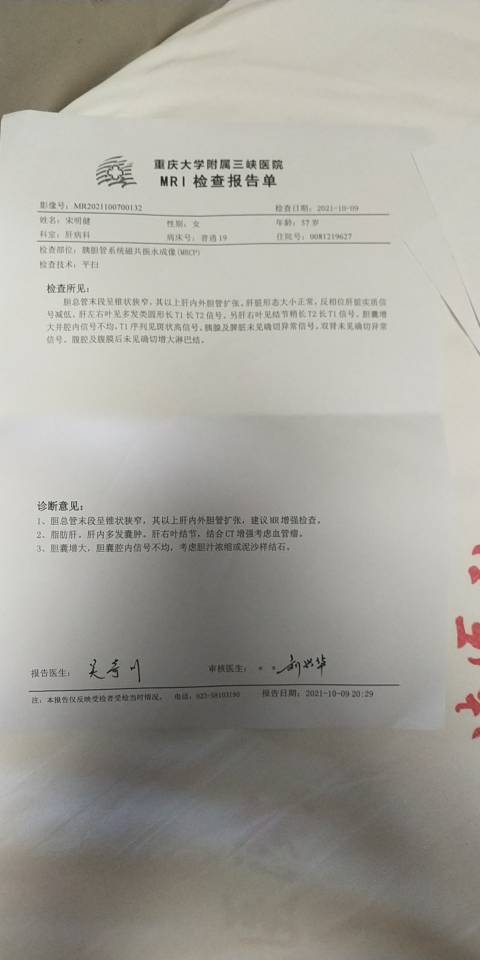 重庆大学附属三峡医院
MRI 检查报告单
影像号：MR2021100700132 检查日期：2021-10-09
姓名：宋明健 性别：女 年龄：57岁
科室：肝病科 病床号：普通19 住院号：0081219627
检查部位：胰胆管系统磁共振水成像(MRCP)
检查技术：平扫
检查所见：
胆总管末段呈锥状狭窄，其以上肝内外胆管扩张。肝脏形态大小正常，反相位肝脏实质信
号减低。肝左右叶见多发类圆形长T1长T2信号。另肝右叶见结节稍长T2长T1信号。胆囊增
大并腔内信号不均，T1序列见斑状高信号。胰腺及脾脏未见确切异常信号。双肾未见确切异常
信号。腹腔及腹膜后未见确切增大淋巴结。
诊断意见：
1、胆总管末段呈锥状狭窄，其以上肝内外胆管扩张，建议MR增强检查。
2、脂肪肝。肝内多发囊肿。肝右叶结节，结合CT增强考虑血管瘤。
3、胆囊增大，胆囊腔内信号不均，考虑胆汁浓缩或泥沙样结石。
报告医生：吴奇川 审核医生：**
注：本报告仅反映受检者受检当时情况。 电话：023-58103190 报告日期：2021-10-09 20:29